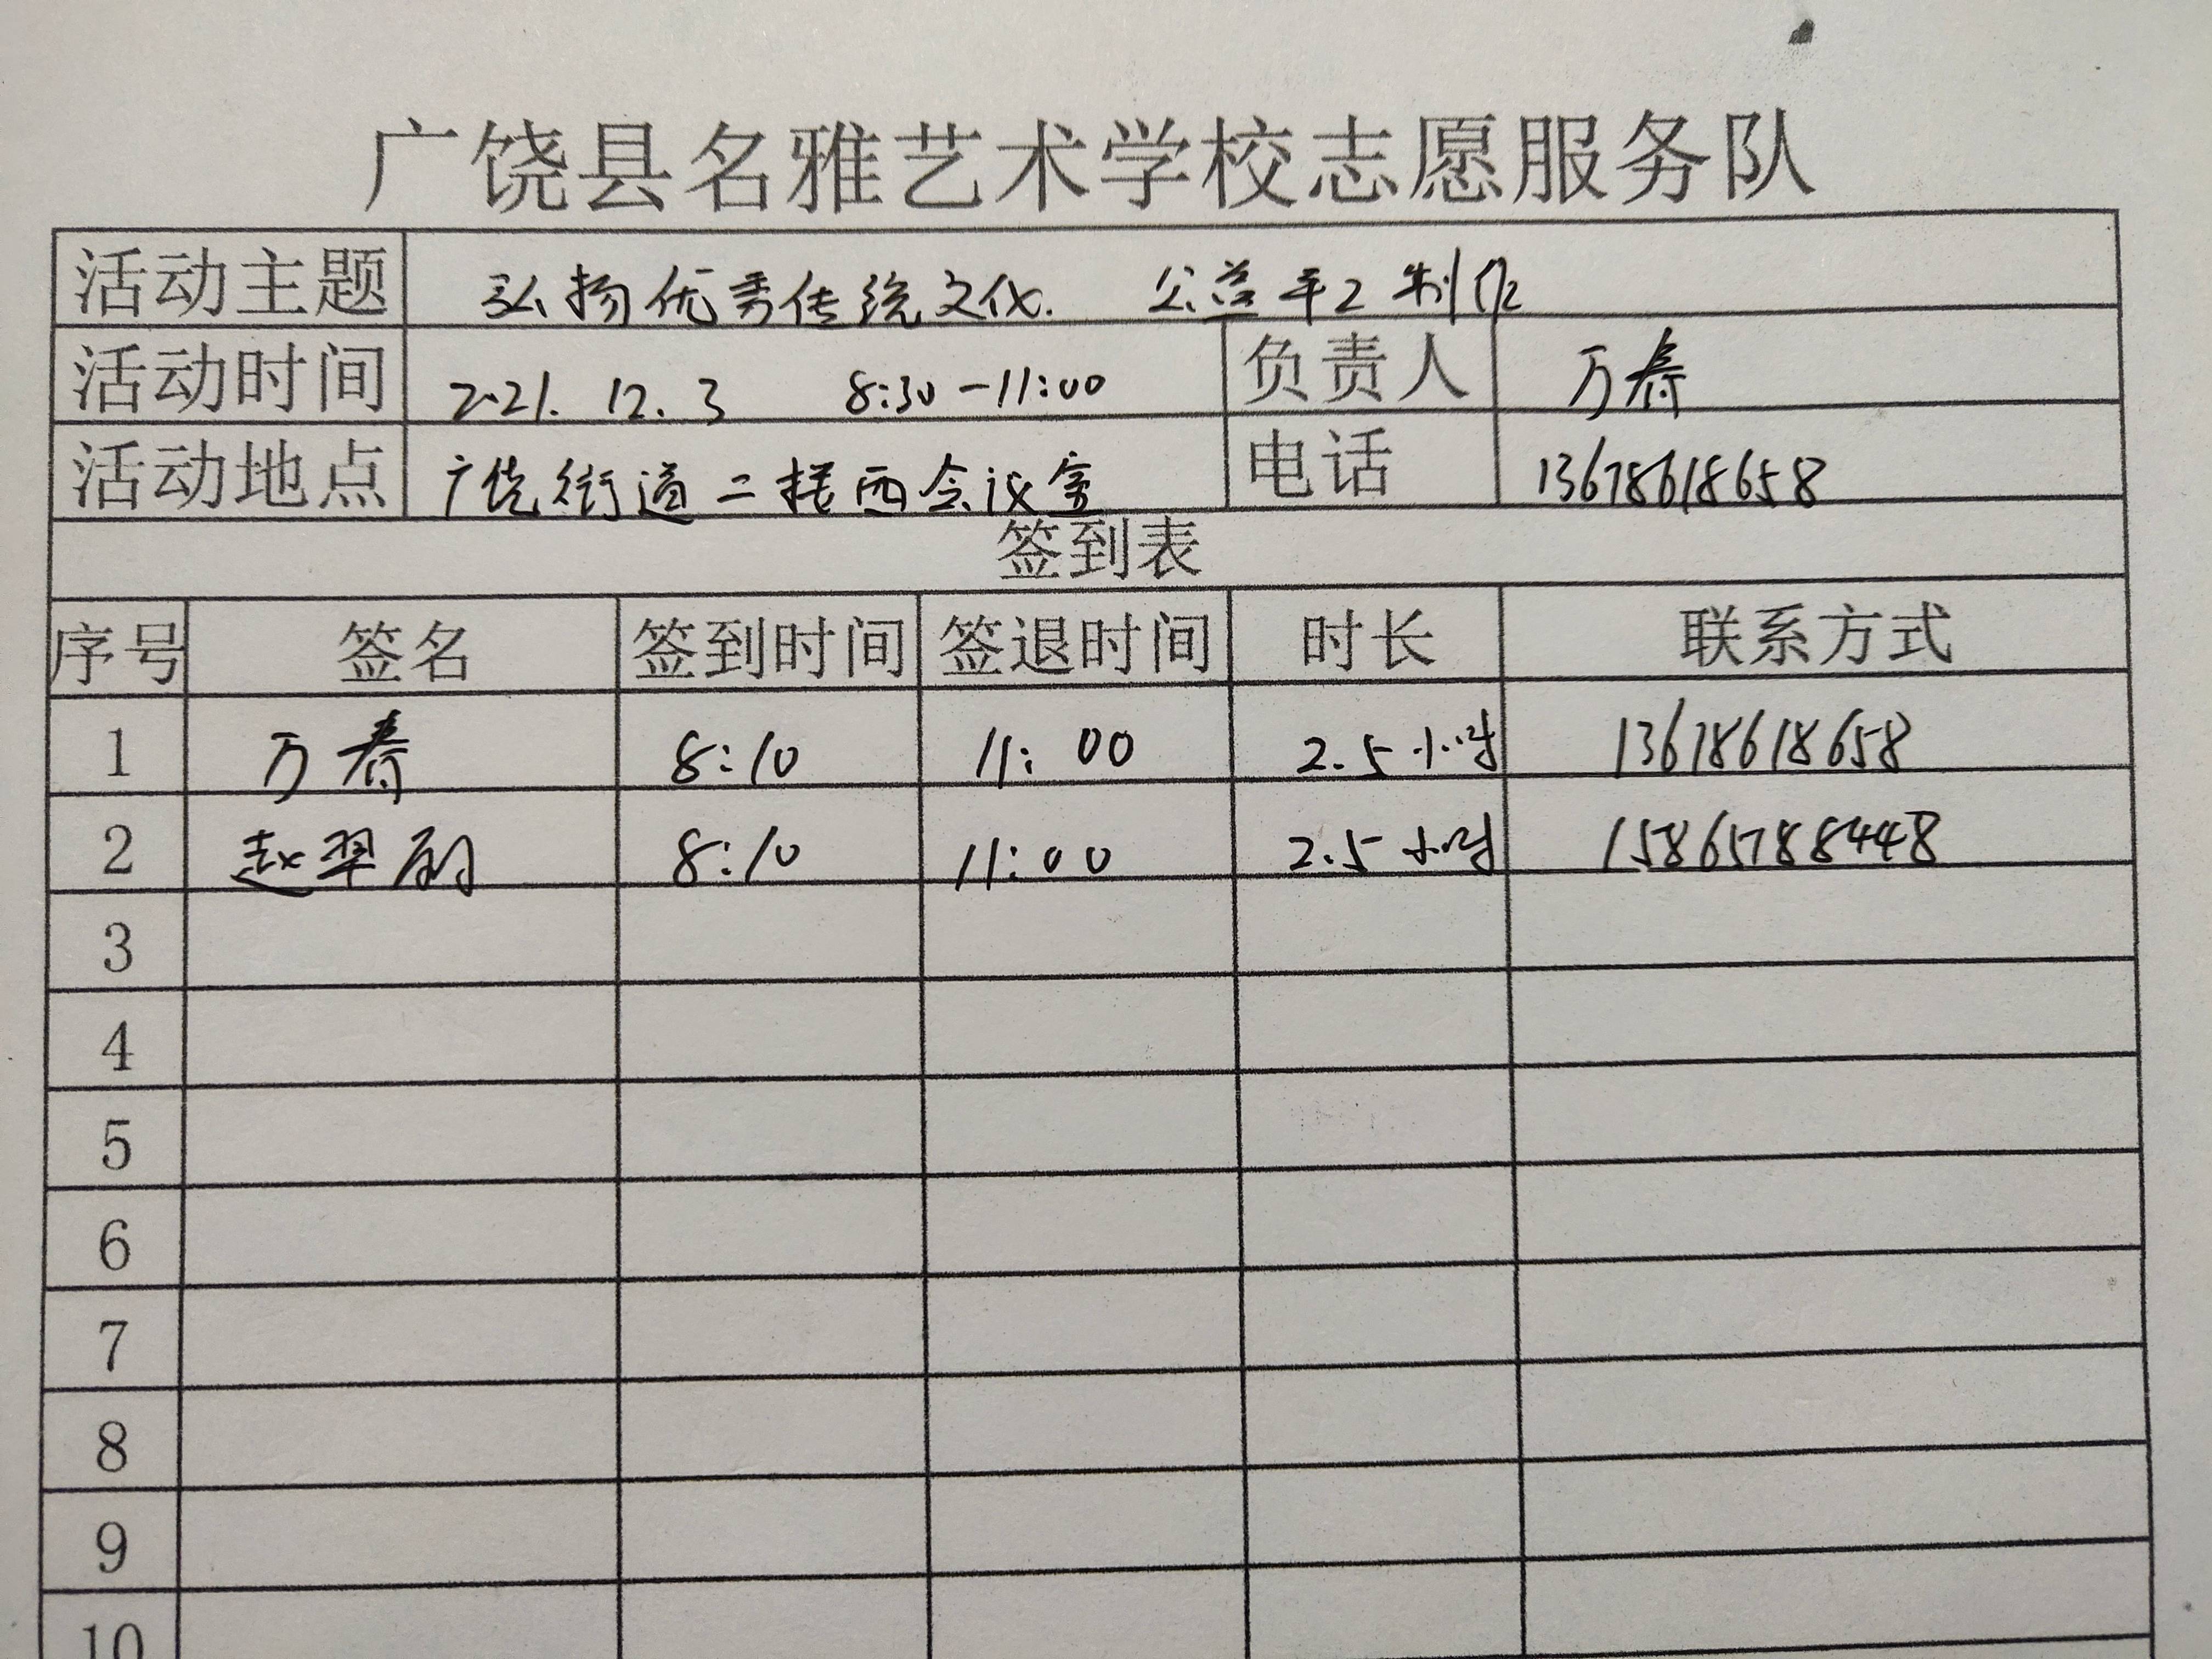 广饶县名雅艺术学校志愿服务队
活动主题 弘扬优秀传统文化. 公益手工制作
活动时间 2021. 12. 3 8:30-11:00 负责人 万寿
活动地点 广饶街道二楼西会议室 电话 13678618658
签到表
序号 签名 签到时间 签退时间 时长 联系方式
1 万寿 8:10 11:00 2.5小时 13678618658
2 赵翠 8:10 11:00 2.5小时 15865788448
3
4
5
6
7
8
9
10